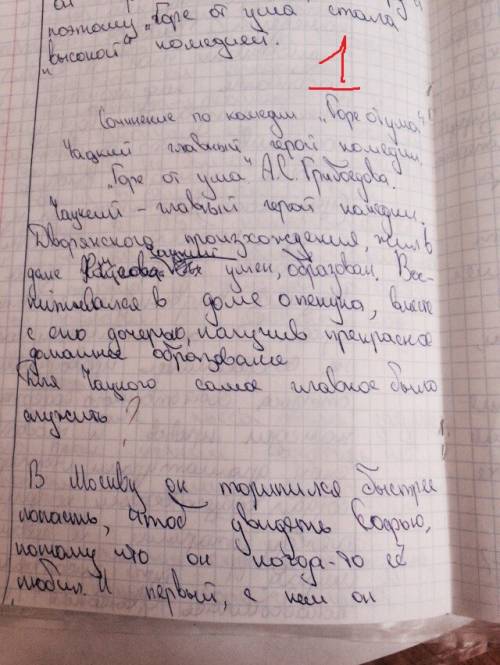 поэтому „Горе от ума стала
„высокой" комедией.
1
Сочинение по комедии „Горе от ума"
Чацкий главный герой комедии
„Горе от ума" А.С. Грибоедова.
Чацкий – главный герой комедии.
Дворянского произхождения, жил в
доме Фамусова. Чацкий умен, образован. Вос-
питывался в доме опекуна, вместе
с его дочерью, получив прекрасное
домашнее образование
Для Чацкого самое главное было
служить ?
В Москву он торипился быстрее
попасть, чтоб увидеть Софью,
потому что он когда-то её
любил. И первый, с кем он